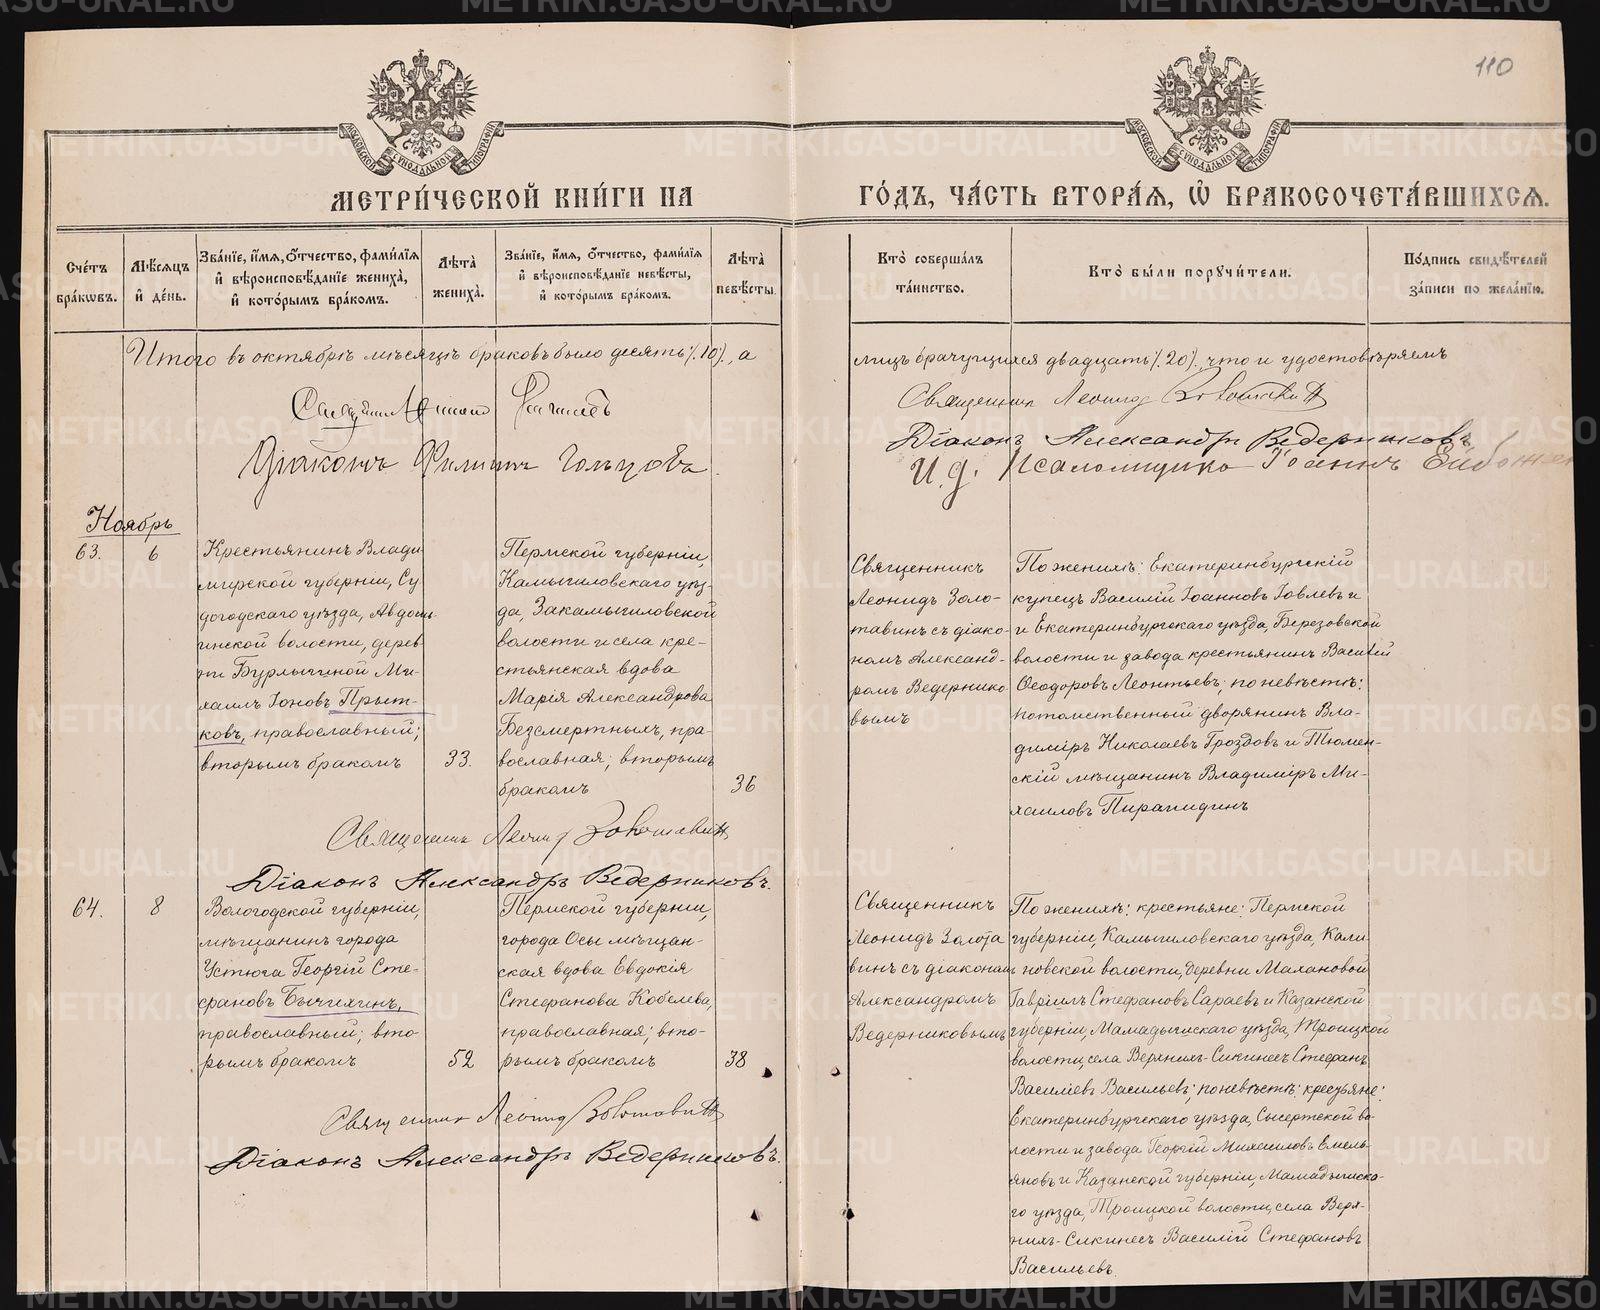 110
МЕТРИ́ЧЕСКОЙ КНИ́ГИ НА ГО́ДЪ, ЧА́СТЬ ВТОРА́Я, Ѡ БРАКОСОЧЕТА́ВШИХСЯ.
Сче́тъ бра́кѡвъ.
Мѣ́сяцъ и҆ де́нь.
Зва́нїе, и҆́мя, о҆́тчество, фами́лїя
и҆ вѣроисповѣ́данїе жениха̀,
и҆ кото́рымъ бра́комъ.
Лѣ́та̀ жениха̀.
Зва́нїе, и҆́мя, о҆́тчество, фами́лїя
и҆ вѣроисповѣ́данїе невѣ́сты,
и҆ кото́рымъ бра́комъ.
Лѣ́та̀ невѣ́сты.
Кто̀ соверша́лъ та́инство.
Кто̀ бы́ли порꙋчи́тели.
По́дпись свидѣ́телей за́писи по жела́нїю.
Итого въ октябрѣ мѣсяцѣ браковъ было десять /.10/., а
лицъ брачущихся двадцать /.20/., что и удостовѣряемъ
Священникъ Леонид Золотавинъ
Діаконъ Филиппъ Гольцовъ.
Діаконъ Александръ Ведерниковъ.
И. д. Псаломщика Іоаннъ
Ноябрь
63.
6
Крестьянинъ Влади
мирской губерніи, Су
догодскаго уѣзда, Авдоть
инской волости, дерев
ни Бурлыгиной Ми-
хаилъ Іоновъ Прыт-
ковъ, православный;
вторымъ бракомъ
33.
Пермской губерніи,
Камышловскаго уѣз-
да, Закамышловской
волости и села кре-
стьянская вдова
Марія Александрова
Безсмертныхъ, пра-
вославная; вторымъ
бракомъ
36
Священникъ
Леонидъ Золо-
тавинъ съ діако-
номъ Александ-
ромъ Ведернико-
вымъ
По женихѣ: Екатеринбургскій
купецъ Василій Іоанновъ Іовлевъ и
и Екатеринбургскаго уѣзда, Березовской
волости и завода крестьянинъ Василій
Ѳеодоровъ Леонтьевъ; по невѣстѣ:
потомственный дворянинъ Вла-
диміръ Николаевъ Гроздовъ и Тюмен-
скій мѣщанинъ Владиміръ Ми-
хаиловъ Пирамидинъ
Священникъ Леонид Золотавинъ
Діаконъ Александръ Ведерниковъ.
64.
8
Вологодской губерніи,
мѣщанинъ города
Устюга Георгій Сте-
фановъ Бычихинъ,
православный; вто-
рымъ бракомъ
52
Пермской губерніи,
города Осы мѣщан-
ская вдова Евдокія
Стефанова Кобелева,
православная; вто-
рымъ бракомъ
38
Священникъ
Леонидъ Золота
винъ съ діакономъ
Александромъ
Ведерниковымъ
По женихѣ: крестьяне: Пермской
губерніи, Камышловскаго уѣзда, Кали-
новской волости, деревни Малановой
Гавріилъ Стефановъ Сараевъ и Казанской
губерніи, Мамадышскаго уѣзда, Троицкой
волости, села Верхнихъ-Сикинесъ Стефанъ
Василіевъ Васильевъ; по невѣстѣ: крестьяне:
Екатеринбургскаго уѣзда, Сысертской во-
лости и завода Георгій Михаиловъ Емель-
яновъ и Казанской губерніи, Мамадышска-
го уѣзда, Троицкой волости, села Верх-
нихъ-Сикинесъ Василій Стефановъ
Васильевъ
Священникъ Леонид Золотавинъ
Діаконъ Александръ Ведерниковъ.
METRIKI.GASO-URAL.RU